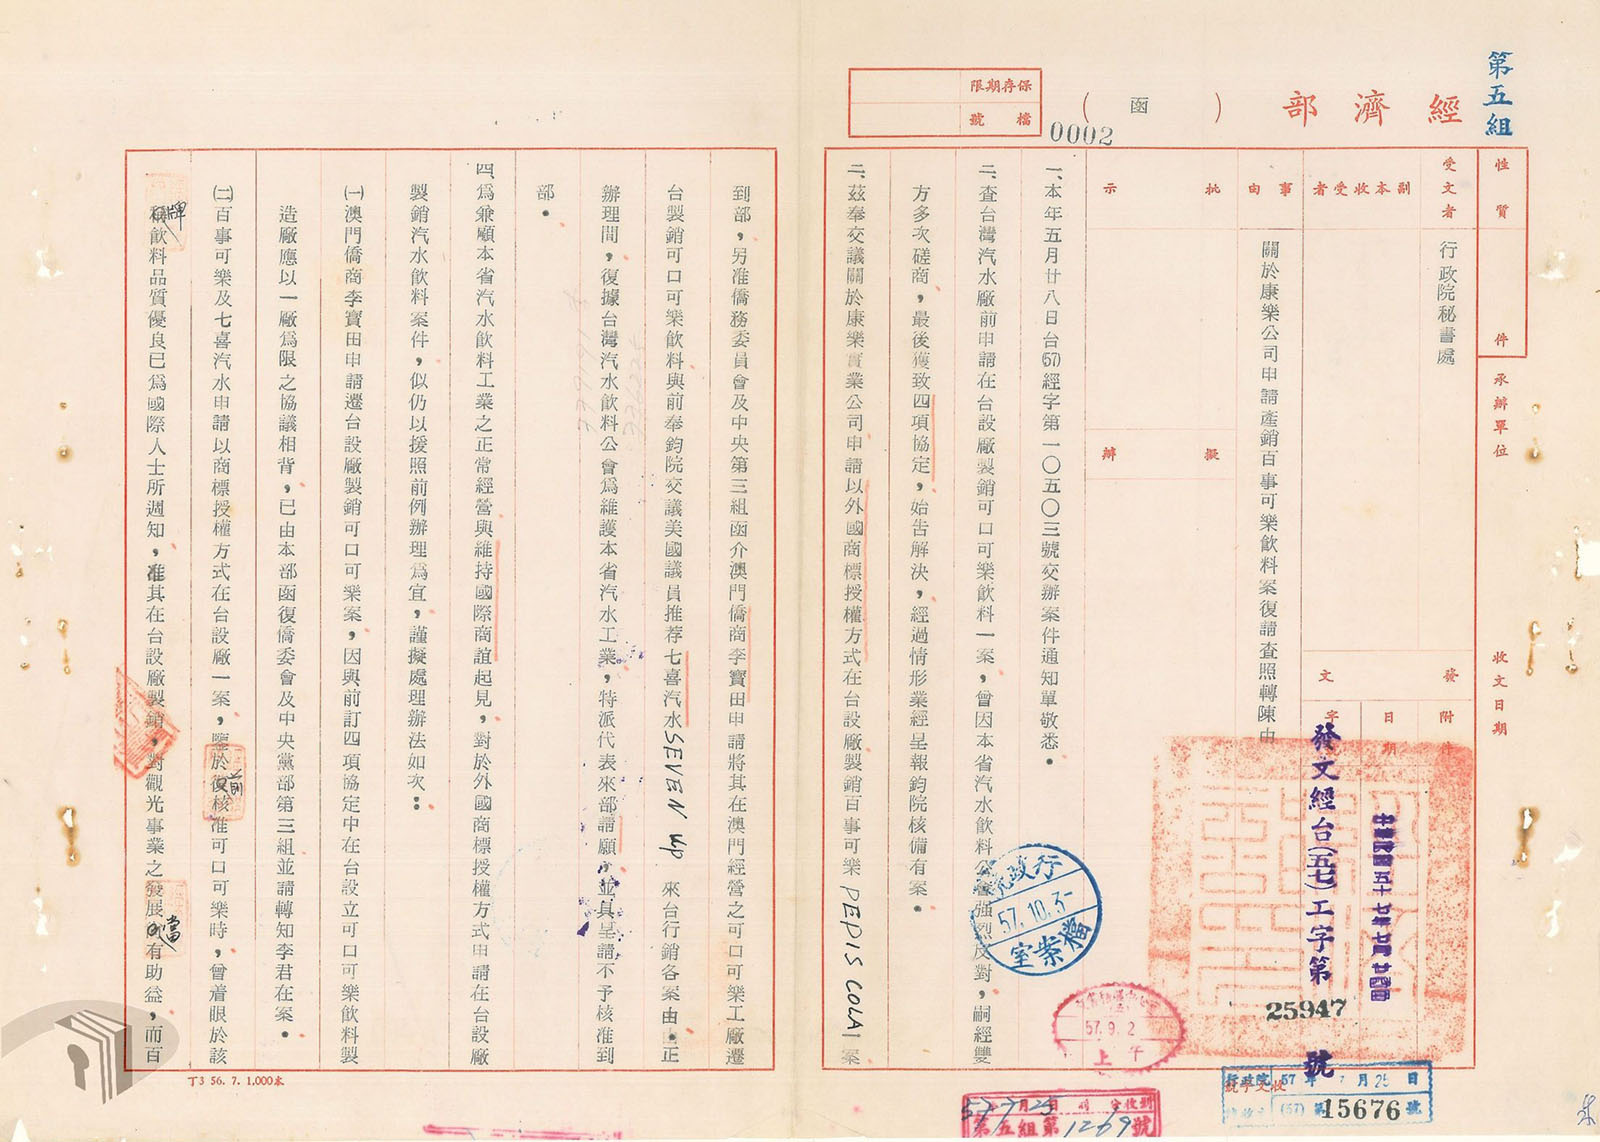 第五組
經濟部
(函)
保存期限
檔號
0002
性質
件
承辦單位
收文日期
受文者
行政院秘書處
副本收受者
事由
關於康樂公司申請產銷百事可樂飲料案復請查照轉陳由
批示
擬辦
發文
附件
日期
字
中華民國五十七年七月廿四日
發文經台(五七)工字第
25947
號
一、本年五月廿八日台(57)經字第一〇五〇三號交辦案件通知單敬悉。
二、查台灣汽水廠前申請在台設廠製銷可口可樂飲料一案,曾因本省汽水飲料公會强烈反對,嗣經雙
方多次磋商,最後獲致四項協定,始告解決,經過情形業經呈報鈞院核備有案。
三、茲奉交議關於康樂實業公司申請以外國商標授權方式在台設廠製銷百事可樂PEPIS COLA1案
到部,另准僑務委員會及中央第三組函介澳門僑商李寶田申請將其在澳門經營之可口可樂工廠遷
台製銷可口可樂飲料與前奉鈞院交議美國議員推荐七喜汽水SEVEN up 來台行銷各案由。正
辦理間,復據台灣汽水飲料公會為維護本省汽水工業,特派代表來部請願,並具呈請不予核准到
部。
四、為兼顧本省汽水飲料工業之正常經營與維持國際商誼起見,對於外國商標授權方式申請在台設廠
製銷汽水飲料案件,似仍以援照前例辦理為宜,謹擬處理辦法如次:
㈠澳門僑商李寶田申請遷台設廠製銷可口可樂案,因與前訂四項協定中在台設立可口可樂飲料製
造廠應以一廠為限之協議相背,已由本部函復僑委會及中央黨部第三組並請轉知李君在案。
㈡百事可樂及七喜汽水申請以商標授權方式在台設廠一案,鑒於前核准可口可樂時,曾着眼於該
牌飲料品質優良已為國際人士所週知,准其在台設廠製銷,對觀光事業之發展當有助益,而百
丁3 56. 7. 1,000本
行政院
57.10.3-
檔案室
57.9.2
上午
57年7月25日
(57)
15676號
57 7月25日
第五組第1269號